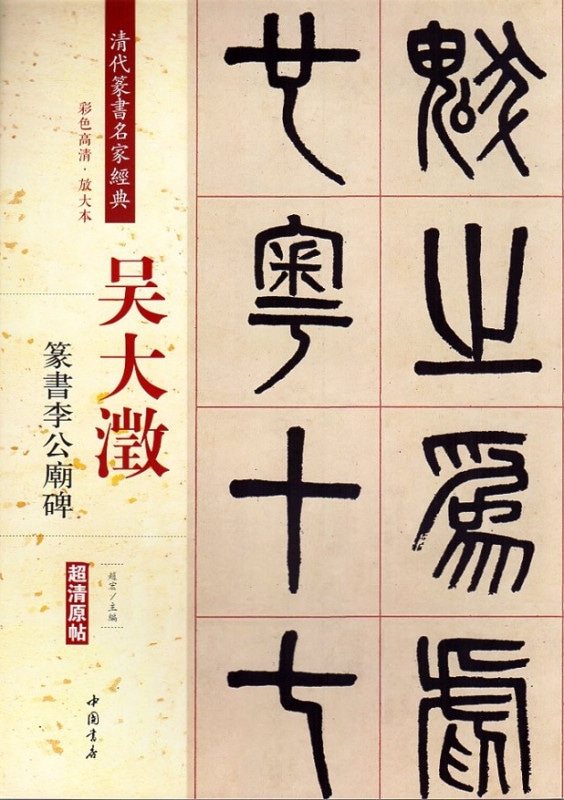 清代篆書名家經典
彩色高清·放大本
吴大澂
篆書李公廟碑
超清原帖
趙宏/主編
中国書店
魃之為虐
也粤十七